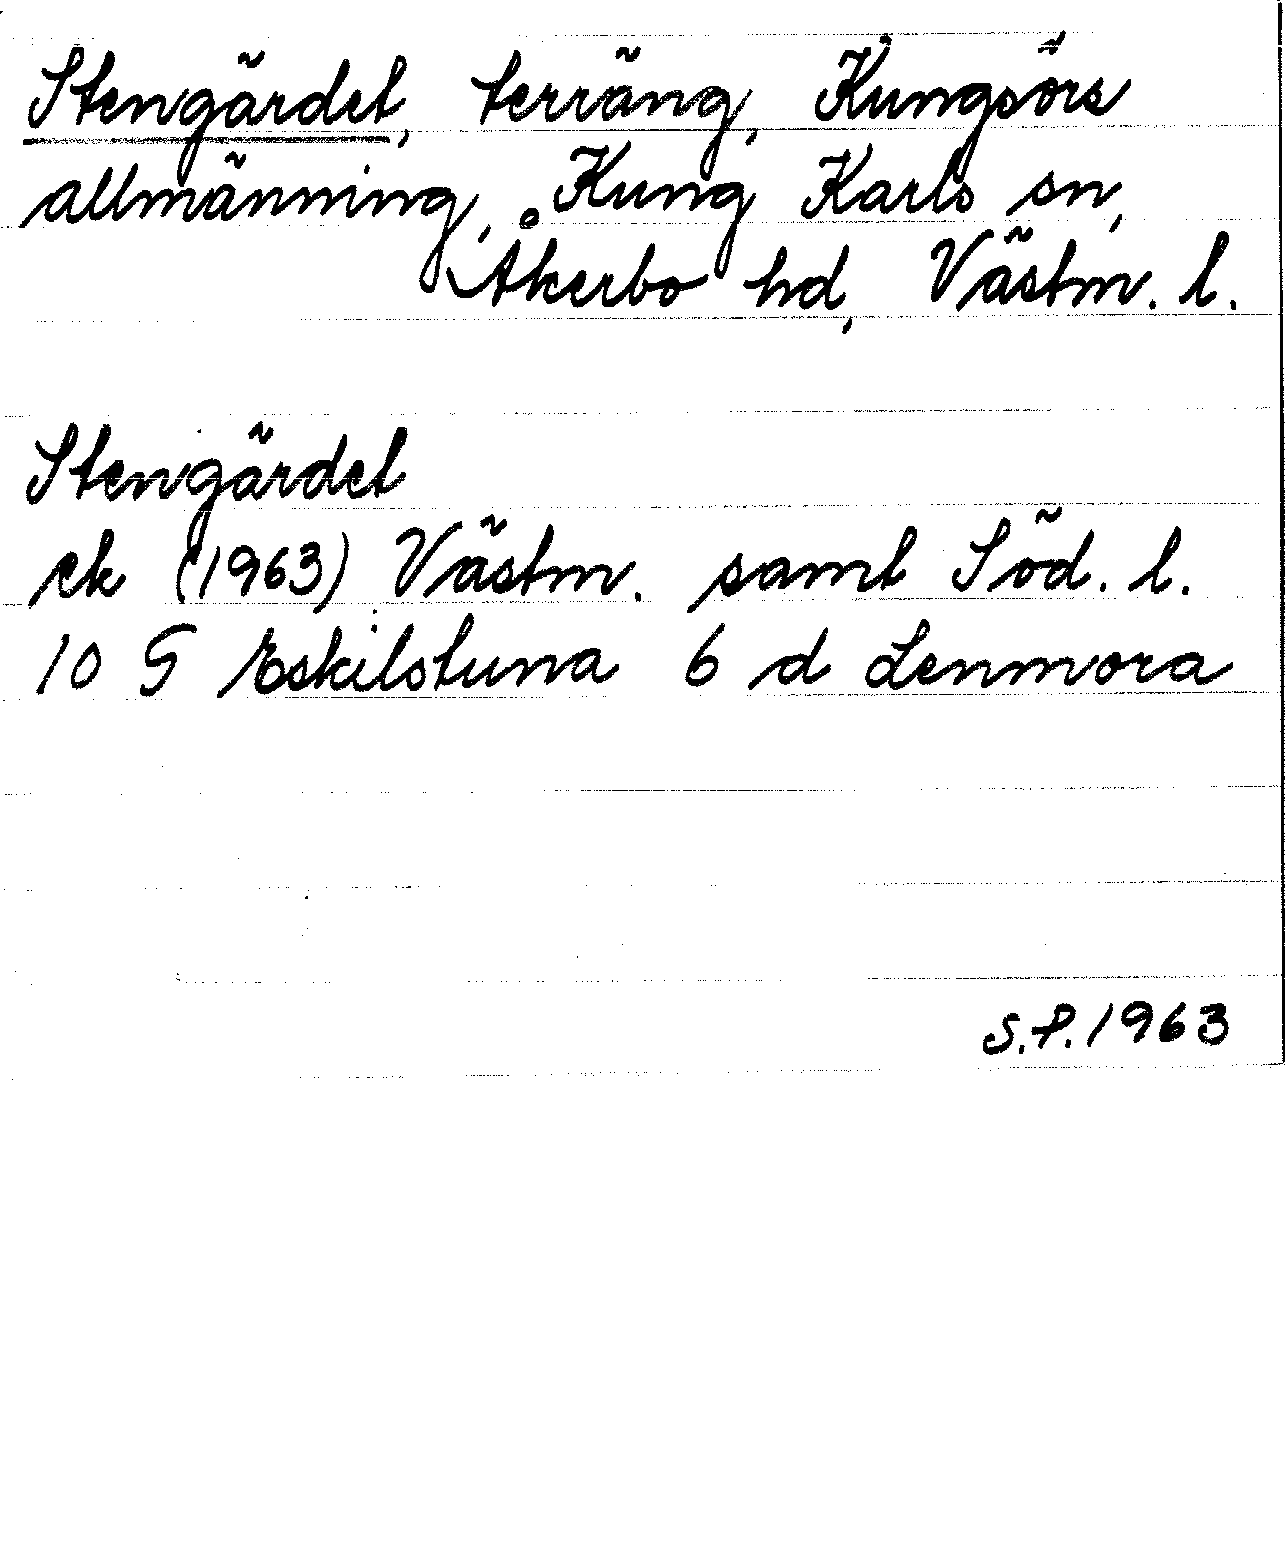 Stengärdet, terräng, Kungsörs
allmänning, Kung Karls sn,
Åkerbo hd, Västm. l.
Stengärdet
ek (1963) Västm. samt Söd. l.
10 G Eskilstuna 6 d Lenmora
S.P. 1963